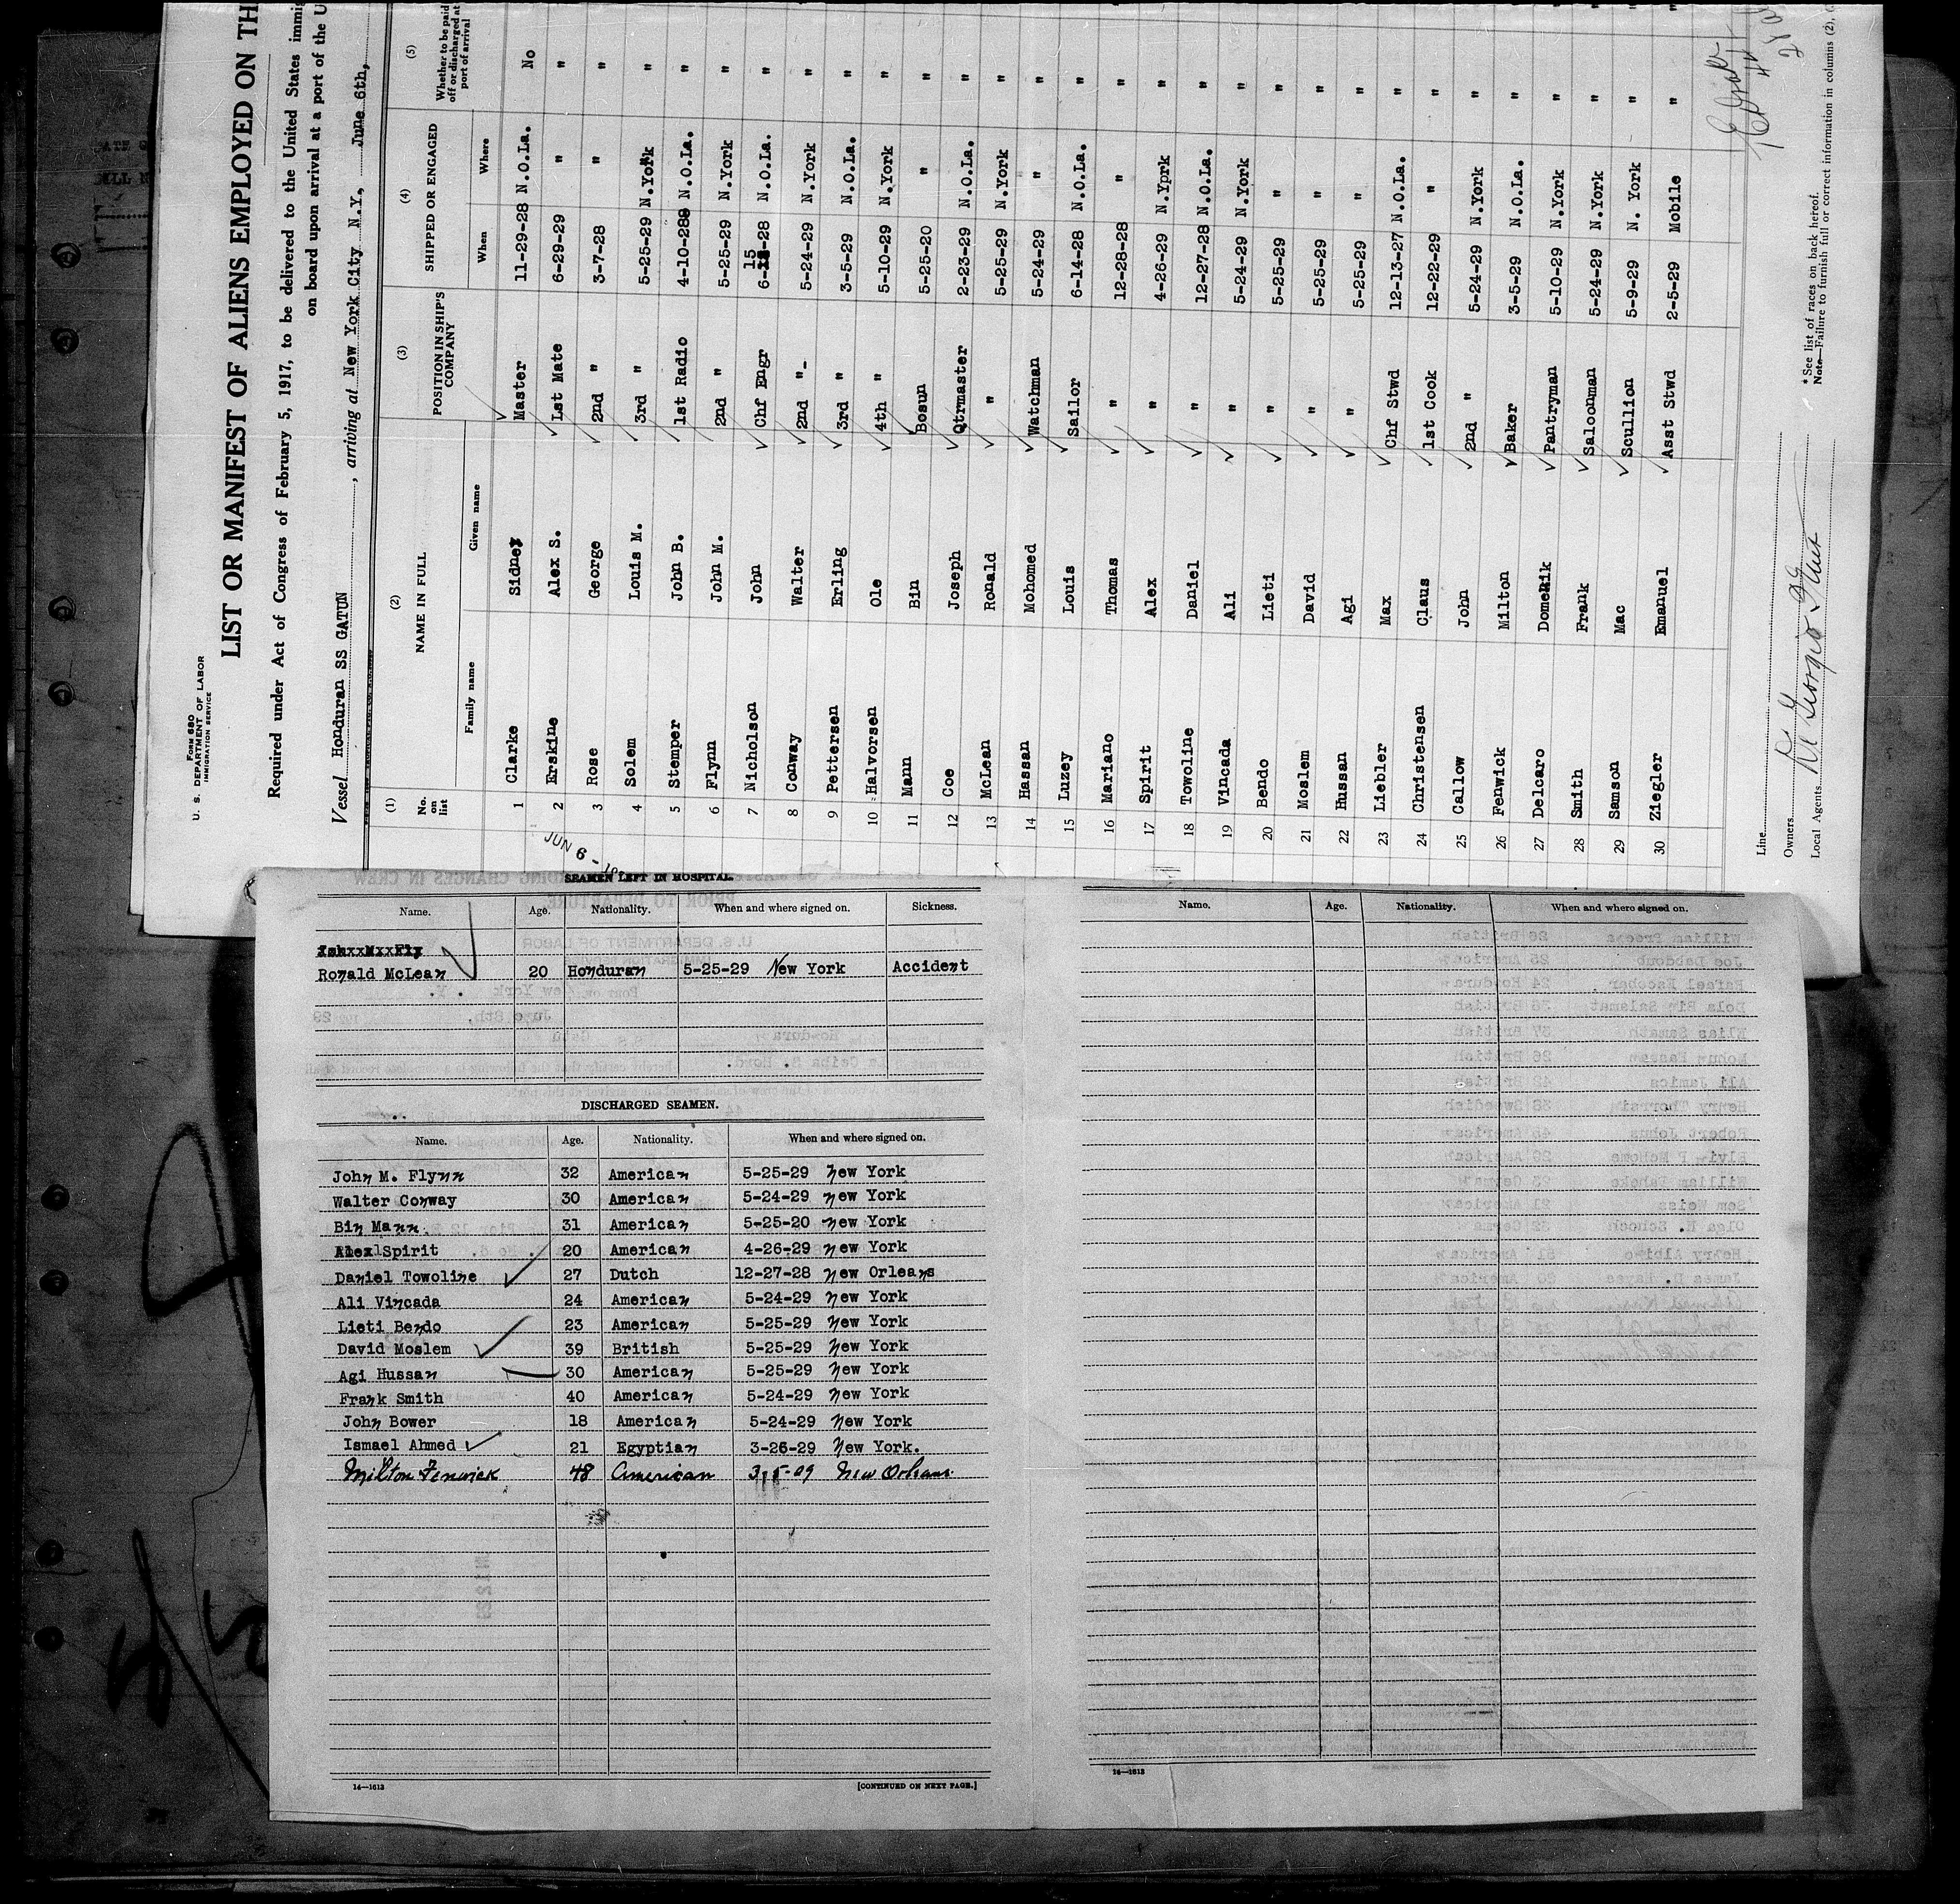 Form 680
U. S. DEPARTMENT OF LABOR
IMMIGRATION SERVICE
LIST OR MANIFEST OF ALIENS EMPLOYED ON TH
Required under Act of Congress of February 5, 1917, to be delivered to the United States immig
on board upon arrival at a port of the U
Vessel Honduran SS GATUN, arriving at New York City N.Y. June 6th,
(1) (2) (3) (4) (5)
No. on list NAME IN FULL POSITION IN SHIP'S COMPANY SHIPPED OR ENGAGED Whether to be paid off or discharged at port of arrival
Family name Given name When Where
1 Clarke Sidney Master 11-29-28 N.O.La. No
2 Erskine Alex S. 1st Mate 6-29-29 " "
3 Rose George 2nd " 3-7-28 " "
4 Solem Louis M. 3rd " 5-25-29 N.York "
5 Stemper John B. 1st Radio 4-10-288 N.O.La. "
6 Flynn John M. 2nd " 5-25-29 N.York "
7 Nicholson John Chf Engr 6-15-28 N.O.La. "
8 Conway Walter 2nd "- 5-24-29 N.York "
9 Pettersen Erling 3rd " 3-5-29 N.O.La. "
10 Halvorsen Ole 4th " 5-10-29 N.York "
11 Mann Bin Bosun 5-25-20 " "
12 Coe Joseph Qtrmaster 2-23-29 N.O.La. "
13 McLean Ronald " 5-25-29 N.York "
14 Hassan Mohomed Watchman 5-24-29 " "
15 Luzey Louis Sailor 6-14-28 N.O.La. "
16 Mariano Thomas " 12-28-28 " "
17 Spirit Alex " 4-26-29 N.Yprk "
18 Towoline Daniel " 12-27-28 N.O.La. "
19 Vincada Ali " 5-24-29 N.York "
20 Bendo Lieti " 5-25-29 " "
21 Moslem David " 5-25-29 " "
22 Hussan Agi " 5-25-29 " "
23 Liebler Max Chf Stwd 12-13-27 N.O.La. "
24 Christensen Claus 1st Cook 12-22-29 " "
25 Callow John 2nd " 5-24-29 N.York "
26 Fenwick Milton Baker 3-5-29 N.O.La. "
27 Delcaro Domenik Pantryman 5-10-29 N.York "
28 Smith Frank Saloonman 5-24-29 N.York "
29 Samson Mac Scullion 5-9-29 N. York "
30 Ziegler Emanuel Asst Stwd 2-5-29 Mobile "
Line
Owners
Local Agents
* See list of races on back hereof.
Note—Failure to furnish full or correct information in columns (2),
JUN 6 - 19
SEAMEN LEFT IN HOSPITAL.
Name. Age. Nationality. When and where signed on. Sickness.
Ronald McLean 20 Honduran 5-25-29 New York Accident
DISCHARGED SEAMEN.
Name. Age. Nationality. When and where signed on.
John M. Flynn 32 American 5-25-29 New York
Walter Conway 30 American 5-24-29 New York
Bin Mann. 31 American 5-25-20 New York
Alex Spirit 20 American 4-26-29 New York
Daniel Towoline 27 Dutch 12-27-28 New Orleans
Ali Vincada 24 American 5-24-29 New York
Lieti Bendo 23 American 5-25-29 New York
David Moslem 39 British 5-25-29 New York
Agi Hussan 30 American 5-25-29 New York
Frank Smith 40 American 5-24-29 New York
John Bower 18 American 5-24-29 New York
Ismael Ahmed 21 Egyptian 3-26-29 New York.
Milton Fenwick 48 American 3-5-29 New Orleans
14—1613 [CONTINUED ON NEXT PAGE.]
Name. Age. Nationality. When and where signed on.
14—1613